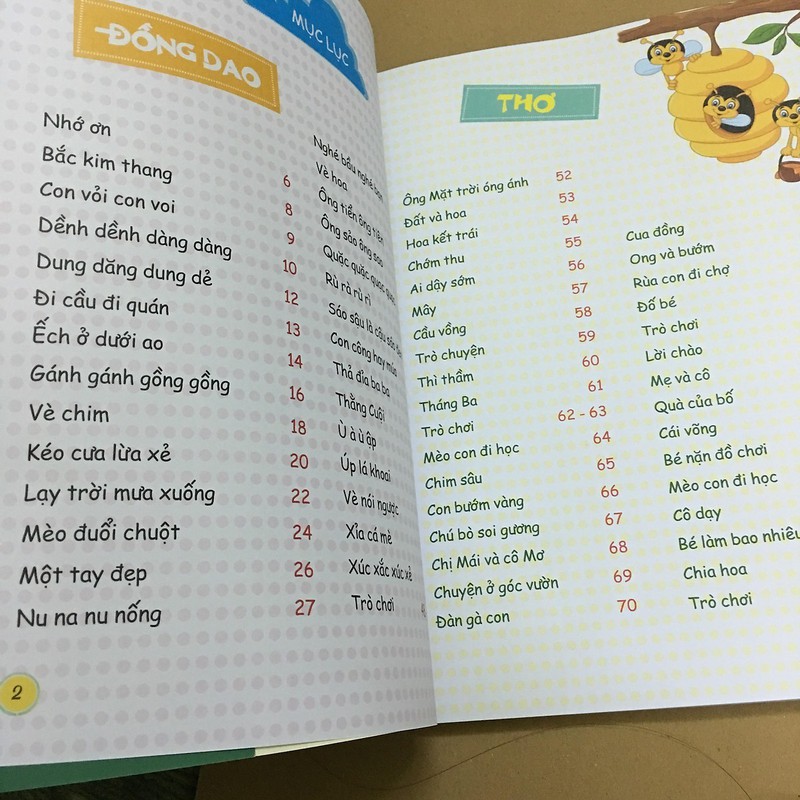 MỤC LỤC
ĐỒNG DAO
Nhớ ơn 6
Bắc kim thang 8
Con vỏi con voi 9
Dềnh dềnh dàng dàng 10
Dung dăng dung dẻ 12
Đi cầu đi quán 13
Ếch ở dưới ao 14
Gánh gánh gồng gồng 16
Vè chim 18
Kéo cưa lừa xẻ 20
Lạy trời mưa xuống 22
Mèo đuổi chuột 24
Một tay đẹp 26
Nu na nu nống 27
Nghé bầu nghé
Vè hoa
Ông tiển ông tiên
Ông sảo ông sao
Quặc quặc quạc quạc
Rù rà rù rì
Sáo sậu là cậu sáo
Con công hay múa
Thả đỉa ba ba
Thằng Cuội
Ù à ù ập
Úp lá khoai
Vè nói ngược
Xỉa cá mè
Xúc xắc xúc xẻ
Trò chơi
2
THƠ
Ông Mặt trời óng ánh 52
Đất và hoa 53
Hoa kết trái 54
Chớm thu 55
Ai dậy sớm 56
Mây 57
Cầu vồng 58
Trò chuyện 59
Thì thầm 60
Tháng Ba 61
Trò chơi 62 - 63
Mèo con đi học 64
Chim sâu 65
Con bướm vàng 66
Chú bò soi gương 67
Chị Mái và cô Mơ 68
Chuyện ở góc vườn 69
Đàn gà con 70
Cua đồng
Ong và bướm
Rùa con đi chợ
Đố bé
Trò chơi
Lời chào
Mẹ và cô
Quà của bố
Cái võng
Bé nặn đồ chơi
Mèo con đi học
Cô dạy
Bé làm bao nhiêu
Chia hoa
Trò chơi